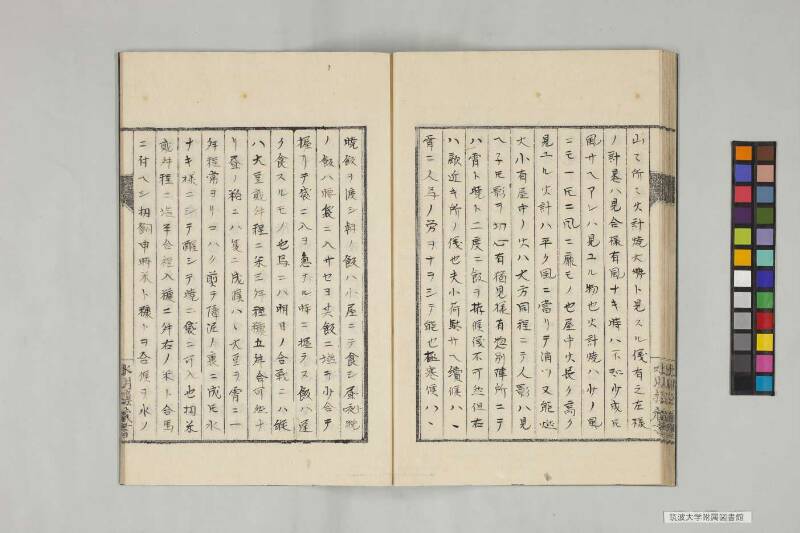 山て所ニ火計焼大勢ト見スル儀有之左様
ノ計畧ハ見合様有風ナキ時ハ不知少成𪜈
風サヘアレハ見ユル物也火計焼ハ少ノ風
ニモ一𪜈ニ風ニ靡モノ也屋中火長ク高ク
見ユル火計ハ平ク風ニ當リテ消ツ又能必
大小有屋中ノ火ハ大方同程ニテ人影ハ見
ヘ子𪜈影ヲ切心有個見様有惣別陣所ニテ
ハ宵ト暁ト二度ニ飯ヲ候儀不可然但右
ハ敵近キ所ノ儀也夫小荷駄サヘ續候ハヽ
幸ニ人馬ノ労ヲナヲシテ能也極寒候ハヽ
暁飯ヲ渡シ朝ノ飯ハ小屋ニテ食シ昼
ノ飯ハ晒袋ニ入サセヨ矢飯ニ塩ヲ少合テ
握リテ袋ニ入ヨ急ナル時ニ握ラス飯ハ
ク食スルモノ也馬ニハ明日ノ合戦ニハ縦
ハ大豆貮舛程ニ米三舛程糠五舛合可然ナ
リ昼ノ粮ニハ筵ニ成候ハヽ大豆ヲ宵ニ一
舛程常ヨリコハク煎テ障泥ノ裏ニ成𪜈水
ナキ様ニシテ醂シテ晩ニ袋ニ可入也扨米
貮舛程ニ塩半合程入糠ニ舛右ノ米ト合馬
ニ付ヘシ扨飼申時米ト糠トヲ合候ヲ水ノ
水明樓叢書
筑波大学附属図書館